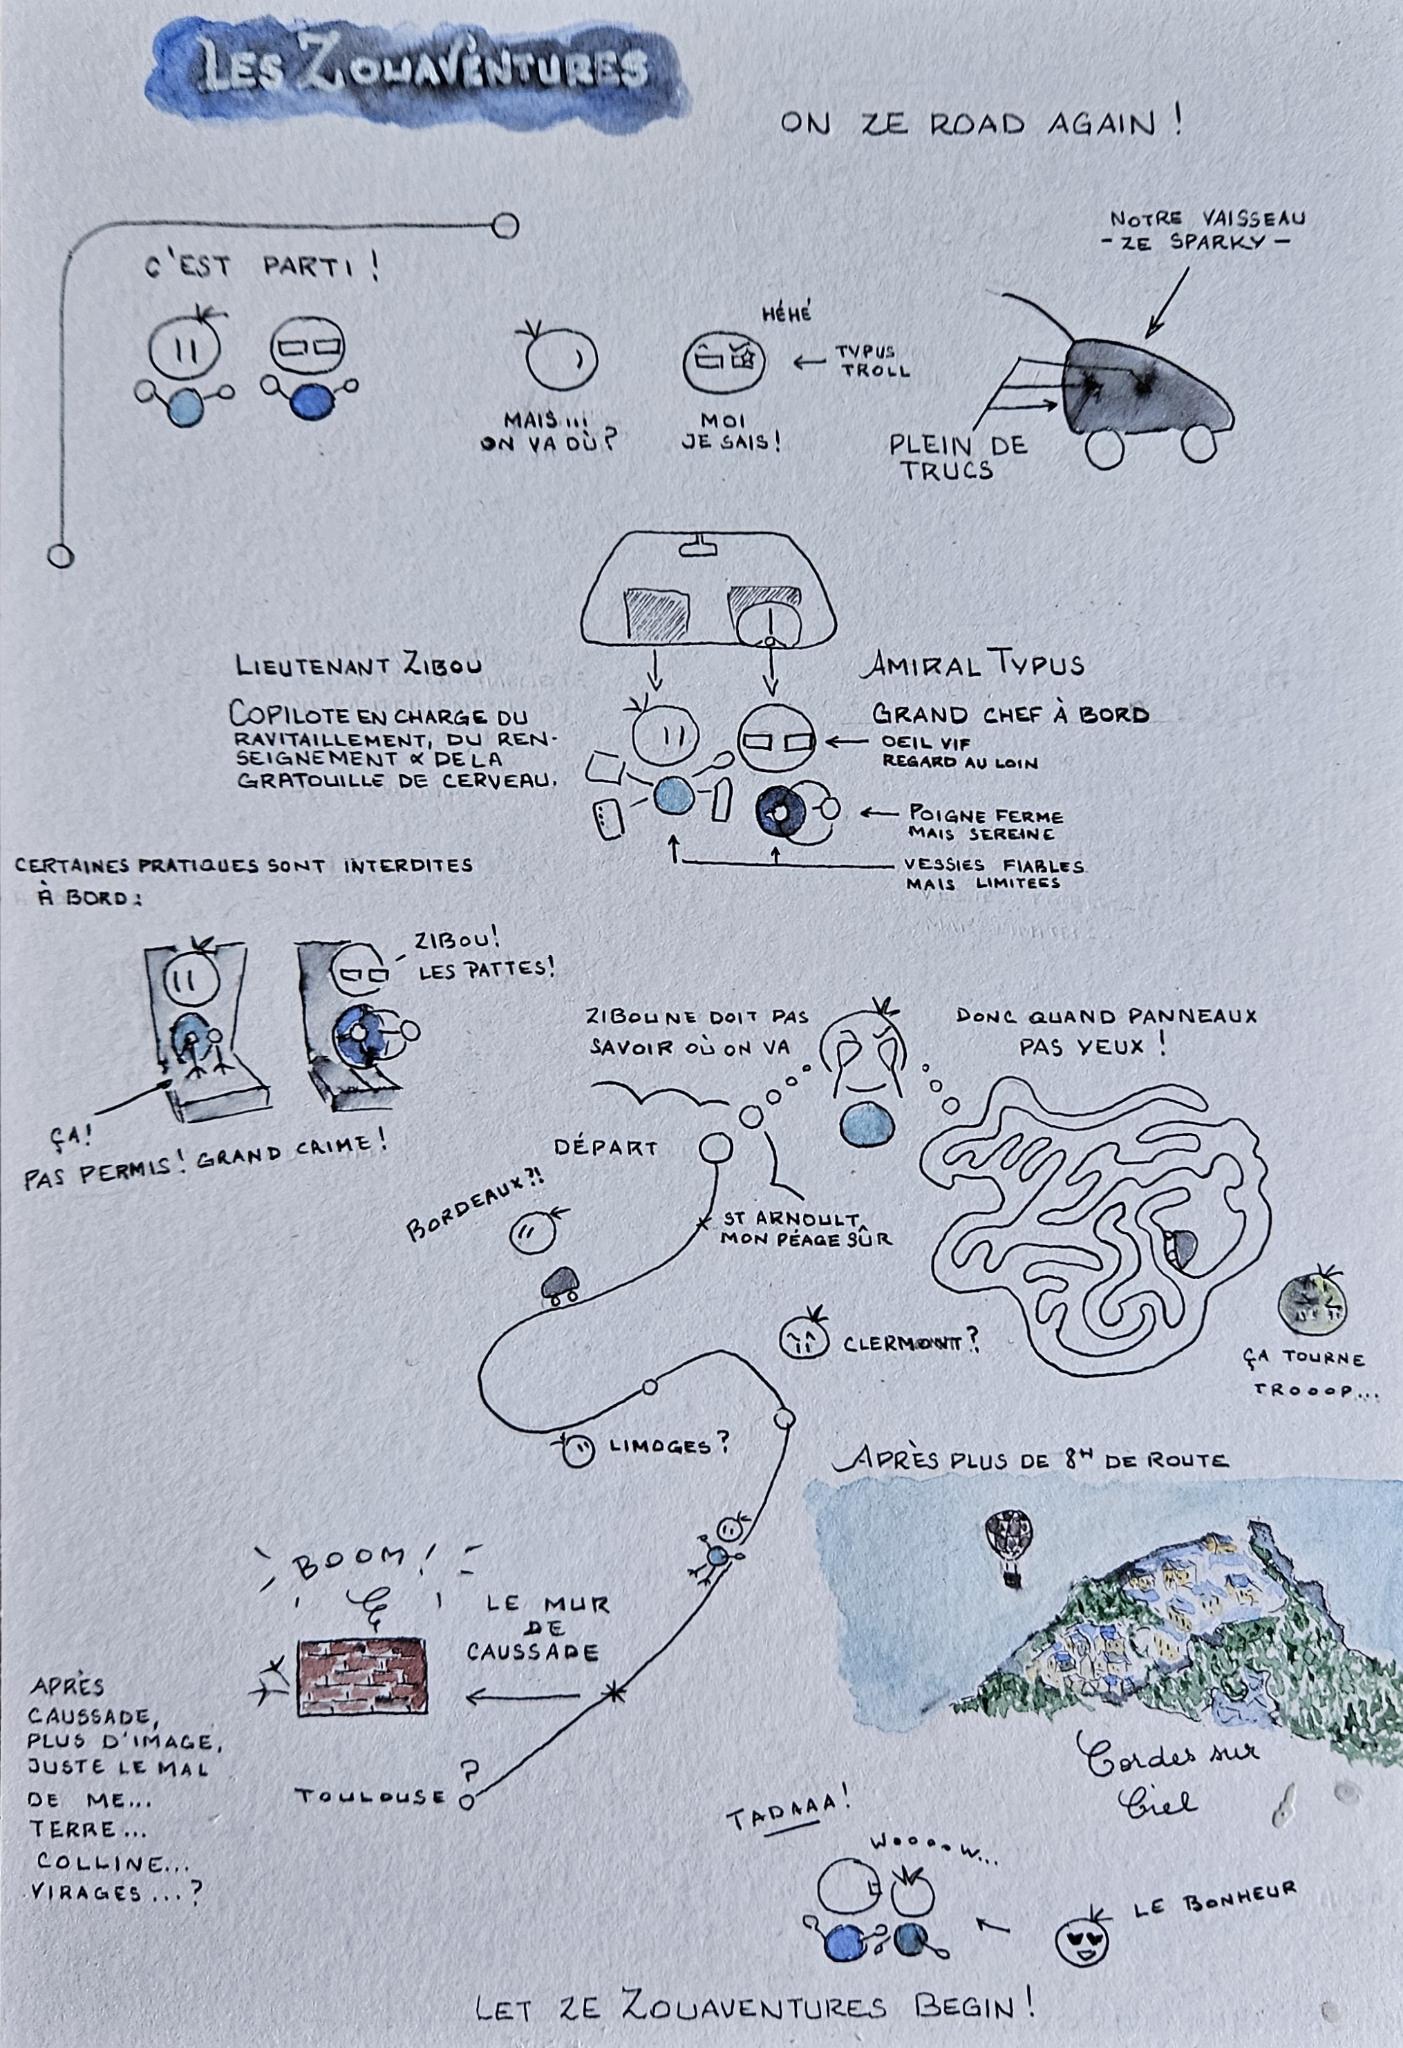 LES ZOUAVENTURES
ON ZE ROAD AGAIN !
C'EST PARTI !
MAIS...
ON VA OÙ ?
HÉHÉ
MOI
JE SAIS !
TYPUS
TROLL
NOTRE VAISSEAU
- ZE SPARKY -
PLEIN DE
TRUCS
LIEUTENANT ZIBOU
COPILOTE EN CHARGE DU
RAVITAILLEMENT, DU REN-
SEIGNEMENT & DE LA
GRATOUILLE DE CERVEAU.
AMIRAL TYPUS
GRAND CHEF À BORD
OEIL VIF
REGARD AU LOIN
POIGNE FERME
MAIS SEREINE
VESSIES FIABLES
MAIS LIMITÉES
CERTAINES PRATIQUES SONT INTERDITES
À BORD :
ZIBOU !
LES PATTES !
ÇA !
PAS PERMIS ! GRAND CRIME !
ZIBOU NE DOIT PAS
SAVOIR OÙ ON VA
DONC QUAND PANNEAUX
PAS YEUX !
DÉPART
ST ARNOULT,
MON PÉAGE SÛR
BORDEAUX ?!
LIMOGES ?
CLERMONT ?
ÇA TOURNE
TROOOP...
APRÈS PLUS DE 8H DE ROUTE
BOOM !
LE MUR
DE
CAUSSADE
APRÈS
CAUSSADE,
PLUS D'IMAGE,
JUSTE LE MAL
DE ME...
TERRE...
COLLINE...
VIRAGES...?
TOULOUSE ?
Cordes sur
Ciel
TADAAA !
WOOOOW...
LE BONHEUR
LET ZE ZOUAVENTURES BEGIN !